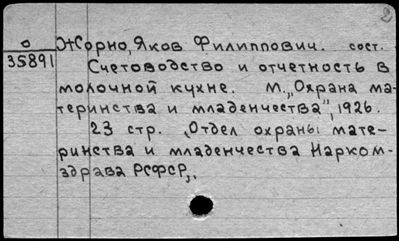 2
о
35891
Жорно, Яков Филиппович. сост.
Счетоводство и отчетность в
молочной кухне. М. „Охрана ма-
теринства и младенчества", 1926.
23 стр. „Отдел охраны мате-
ринства и младенчества Нарком-
здрава РСФСР„.